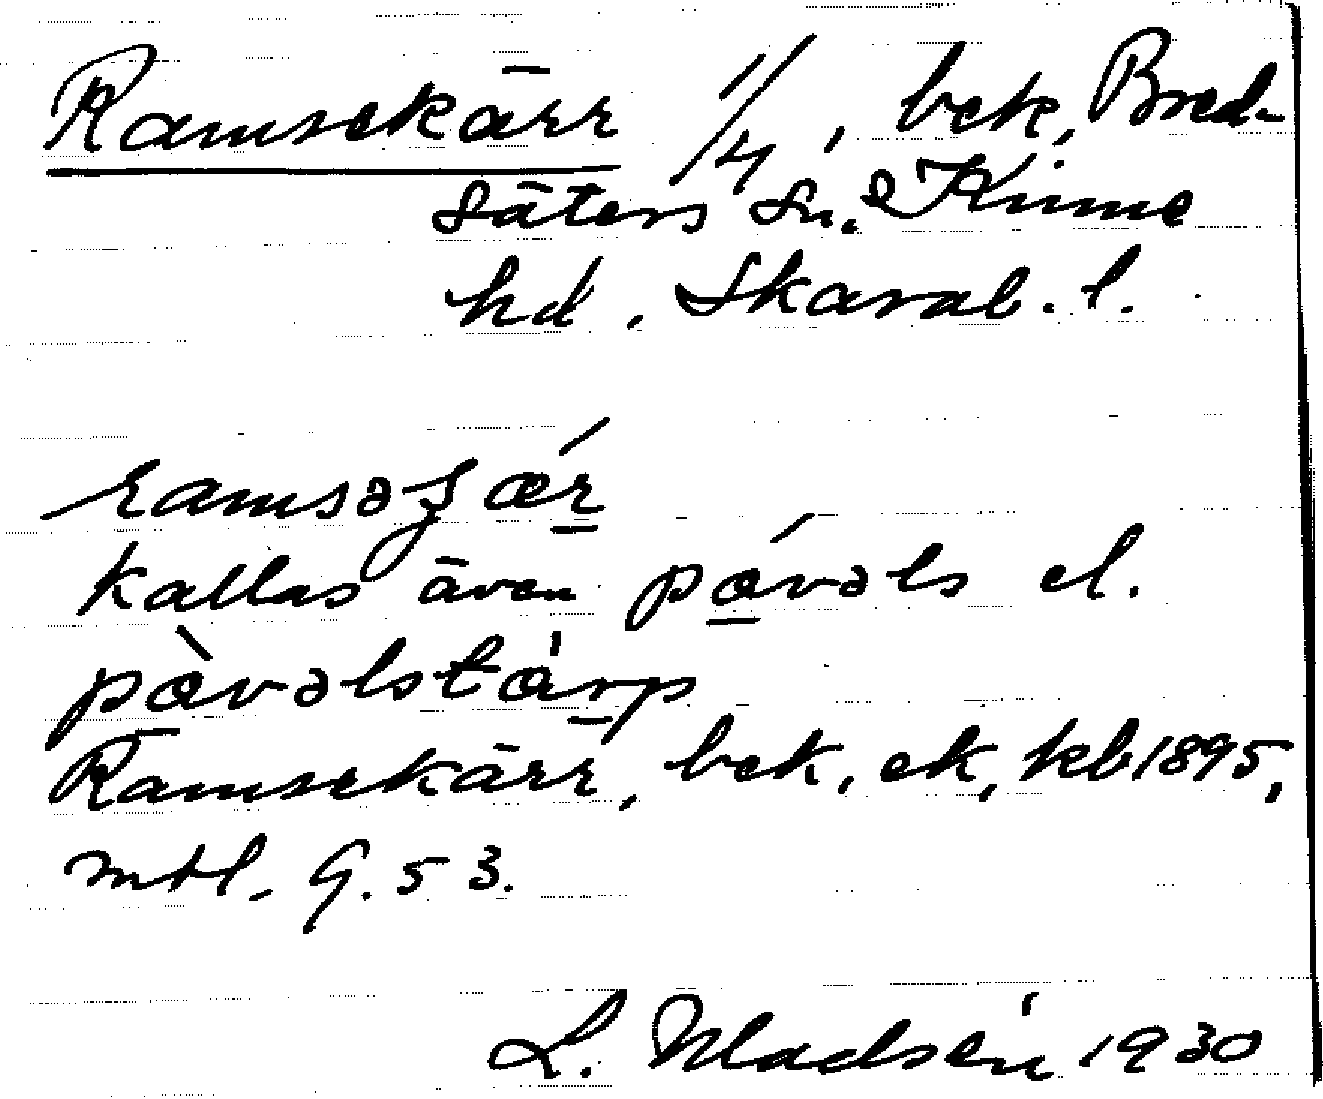 Ramsekärr 1/4, bek, Bred-
säters sn. Kinne
hd. Skarab. l.
ramsəʃǽr
kallas även påvəls el.
pàvəlstårp
Ramsekärr, bek, ek, kb 1895,
mtl. 9.53.
L. Madsén 1930